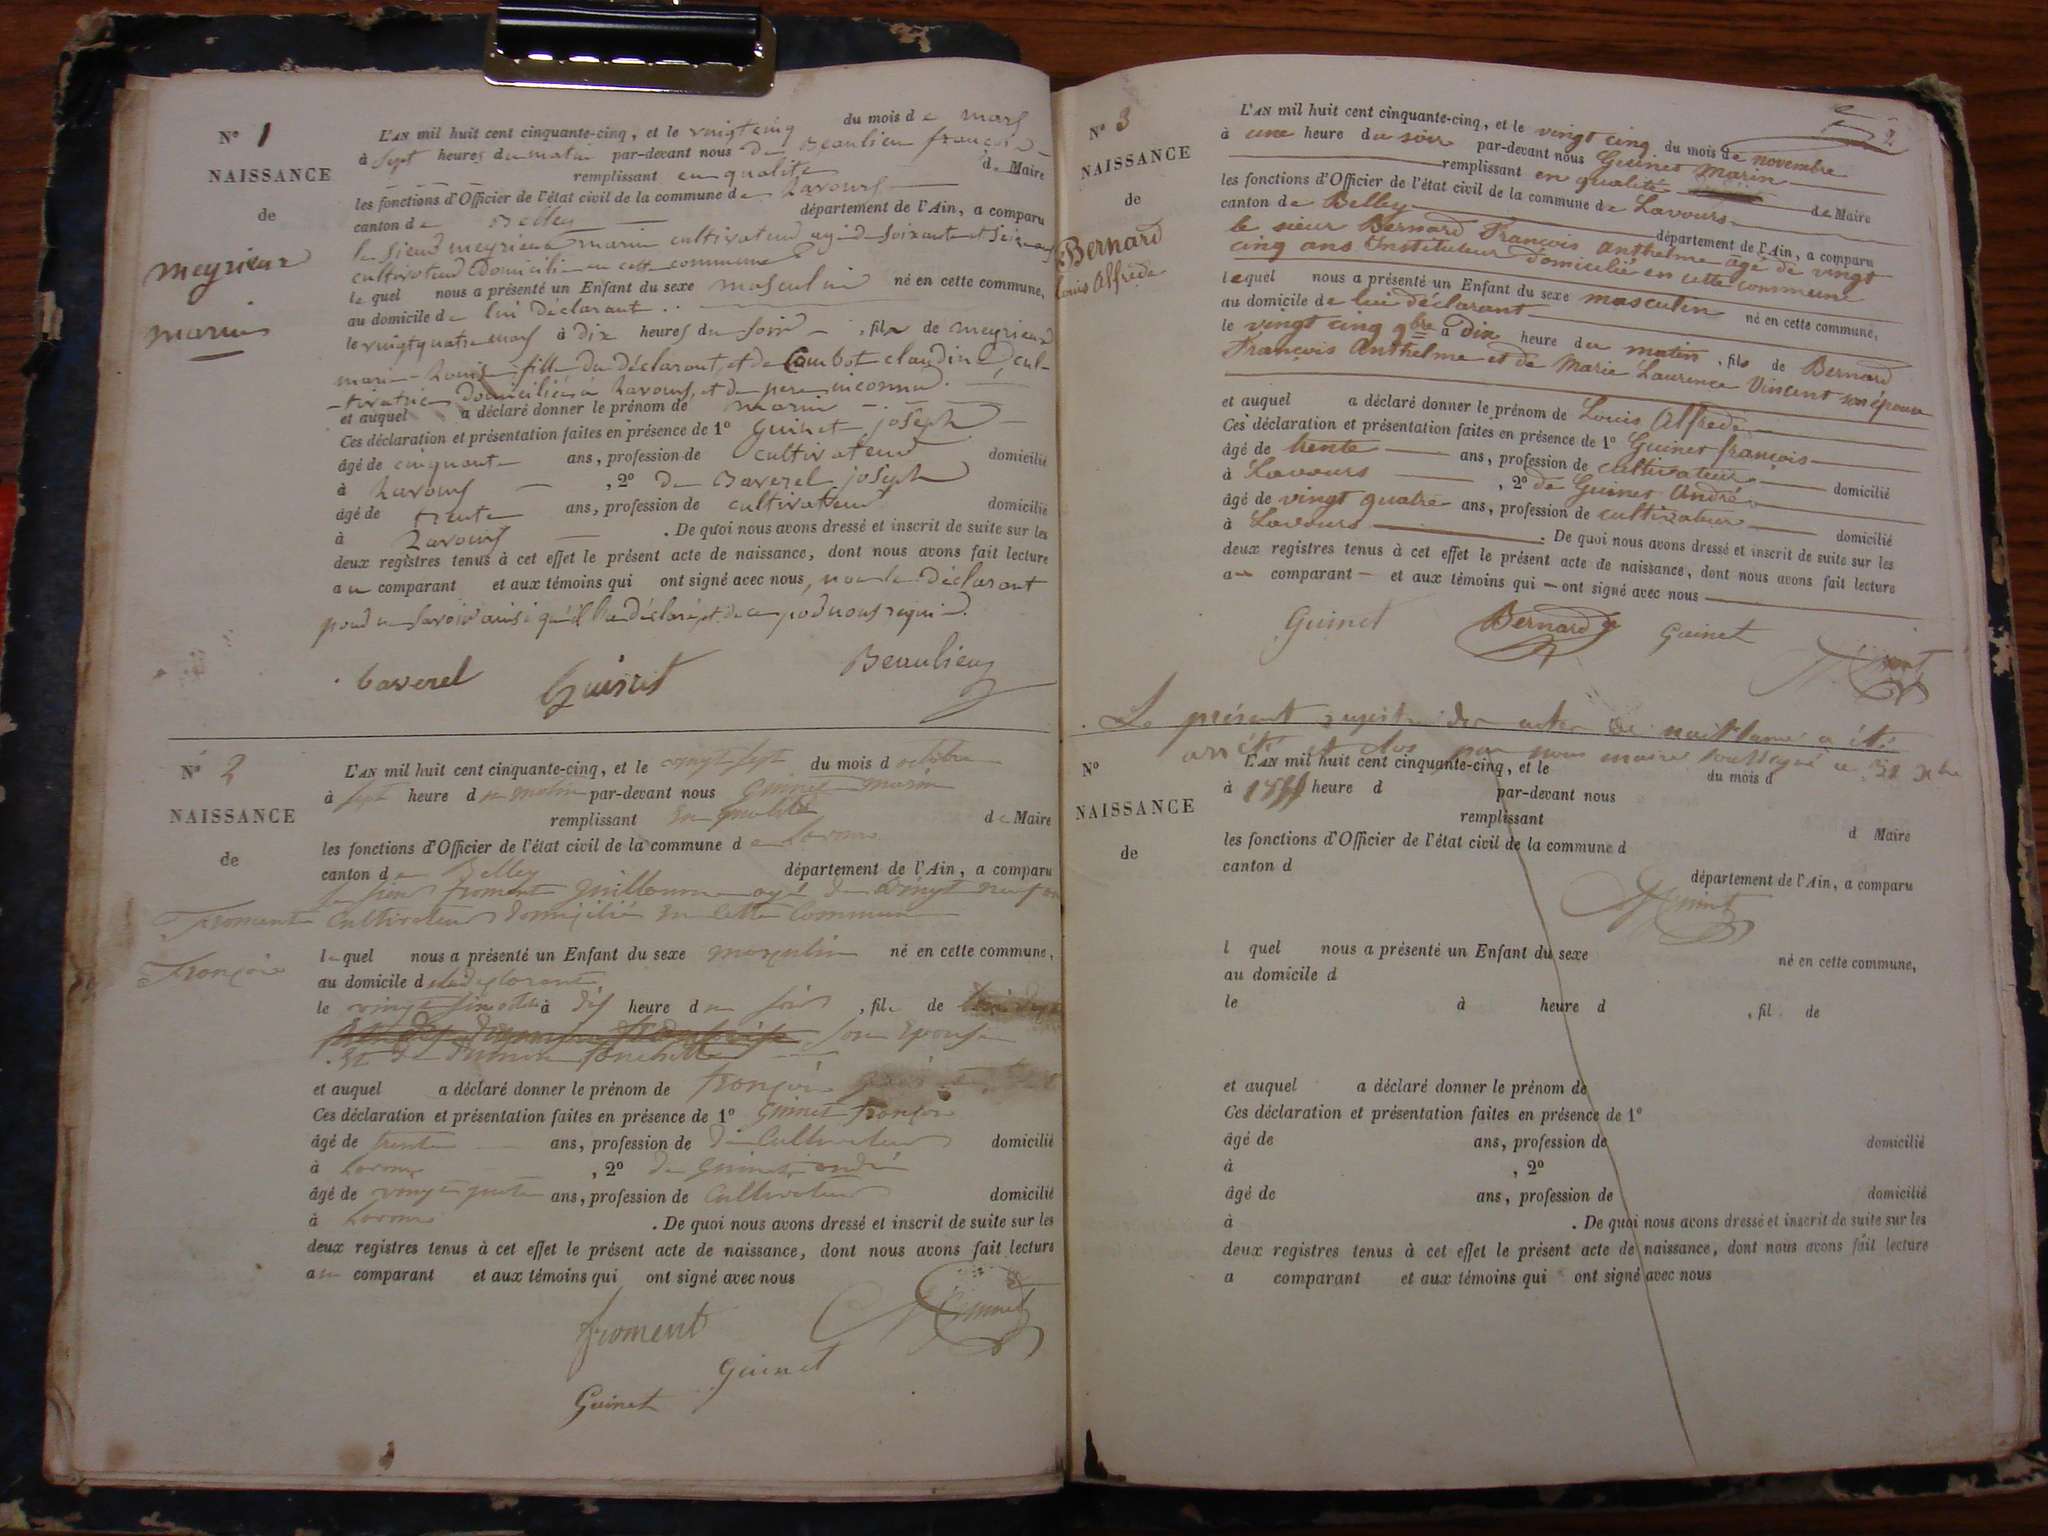 N° 1
NAISSANCE
de
meyrieux
marin
L'AN mil huit cent cinquante-cinq, et le vingt cinq du mois de mars
à sept heures du matin par-devant nous de Beaulieu françois
remplissant en qualité de Maire
les fonctions d'Officier de l'état civil de la commune de Lavours
canton de Belley département de l'Ain, a comparu
le sieur meyrieux marin cultivateur agé de soixante et
cultivateur domicilié en cette commune
le quel nous a présenté un Enfant du sexe masculin né en cette commune,
au domicile de lui déclarant
le vingt quatre mars à dix heures du soir, fils de meyrieux
marie Louise fille du déclarant, et de Combot claudine, cul-
-tivatrice domiciliée à Lavours, et de pere inconnu.
et auquel a déclaré donner le prénom de marin
Ces déclaration et présentation faites en présence de 1° Guinet joseph
âgé de cinquante ans, profession de cultivateur domicilié
à Lavours, 2° de Baverel joseph
âgé de trente ans, profession de cultivateur domicilié
à Lavours. De quoi nous avons dressé et inscrit de suite sur les
deux registres tenus à cet effet le présent acte de naissance, dont nous avons fait lecture
au comparant et aux témoins qui ont signé avec nous, non le déclarant
pour ne savoir ainsi qu'il l'a déclaré, et de ce par nous requis.
baverel Guinet Beaulieu
N° 2
NAISSANCE
de
Froment
François
L'AN mil huit cent cinquante-cinq, et le vingt sept du mois d octobre
à sept heure du matin par-devant nous Guinet marin
remplissant en qualité de Maire
les fonctions d'Officier de l'état civil de la commune de Lavours
canton de Belley département de l'Ain, a comparu
le sieur froment Guillaume agé de vingt neuf ans
Cultivateur domicilié en cette Commune
lequel nous a présenté un Enfant du sexe masculin né en cette commune,
au domicile du declarant
le vingt six à dix heure du soir, fils de
son Epouse
et auquel a déclaré donner le prénom de françois
Ces déclaration et présentation faites en présence de 1° Guinet françois
âgé de trente ans, profession de Cultivateur domicilié
à Lavours, 2° de Guinet andré
âgé de vingt quatre ans, profession de Cultivateur domicilié
à Lavours. De quoi nous avons dressé et inscrit de suite sur les
deux registres tenus à cet effet le présent acte de naissance, dont nous avons fait lecture
au comparant et aux témoins qui ont signé avec nous
froment Guinet
Guinet
Guinet
N° 3
NAISSANCE
de
Bernard
Louis Alfrede
2
L'AN mil huit cent cinquante-cinq, et le vingt cinq du mois de novembre
à une heure du soir par-devant nous Guinet Marin
remplissant en qualité de Maire
les fonctions d'Officier de l'état civil de la commune de Lavours
canton de Belley département de l'Ain, a comparu
le sieur Bernard François Anthelme agé de vingt
cinq ans Instituteur domicilié en cette commune
lequel nous a présenté un Enfant du sexe masculin né en cette commune,
au domicile de lui déclarant
le vingt cinq 9bre à dix heure du matin, fils de Bernard
François Anthelme et de Marie Laurence Vincent son épouse
et auquel a déclaré donner le prénom de Louis Alfrede
Ces déclaration et présentation faites en présence de 1° Guinet françois
âgé de trente ans, profession de cultivateur domicilié
à Lavours, 2° de Guinet André
âgé de vingt quatre ans, profession de cultivateur domicilié
à Lavours. De quoi nous avons dressé et inscrit de suite sur les
deux registres tenus à cet effet le présent acte de naissance, dont nous avons fait lecture
au comparant et aux témoins qui ont signé avec nous
Guinet Bernard Guinet Guinet
Le présent registre des actes de naissance a été
arrêté et clos par nous maire soussigné ce 31 Xbre
1855
N°
NAISSANCE
de
L'AN mil huit cent cinquante-cinq, et le du mois d
à heure d par-devant nous
remplissant d Maire
les fonctions d'Officier de l'état civil de la commune d
canton d département de l'Ain, a comparu
Guinet
l quel nous a présenté un Enfant du sexe né en cette commune,
au domicile d
le à heure d, fil de
et auquel a déclaré donner le prénom de
Ces déclaration et présentation faites en présence de 1°
âgé de ans, profession de domicilié
à, 2°
âgé de ans, profession de domicilié
à. De quoi nous avons dressé et inscrit de suite sur les
deux registres tenus à cet effet le présent acte de naissance, dont nous avons fait lecture
a comparant et aux témoins qui ont signé avec nous